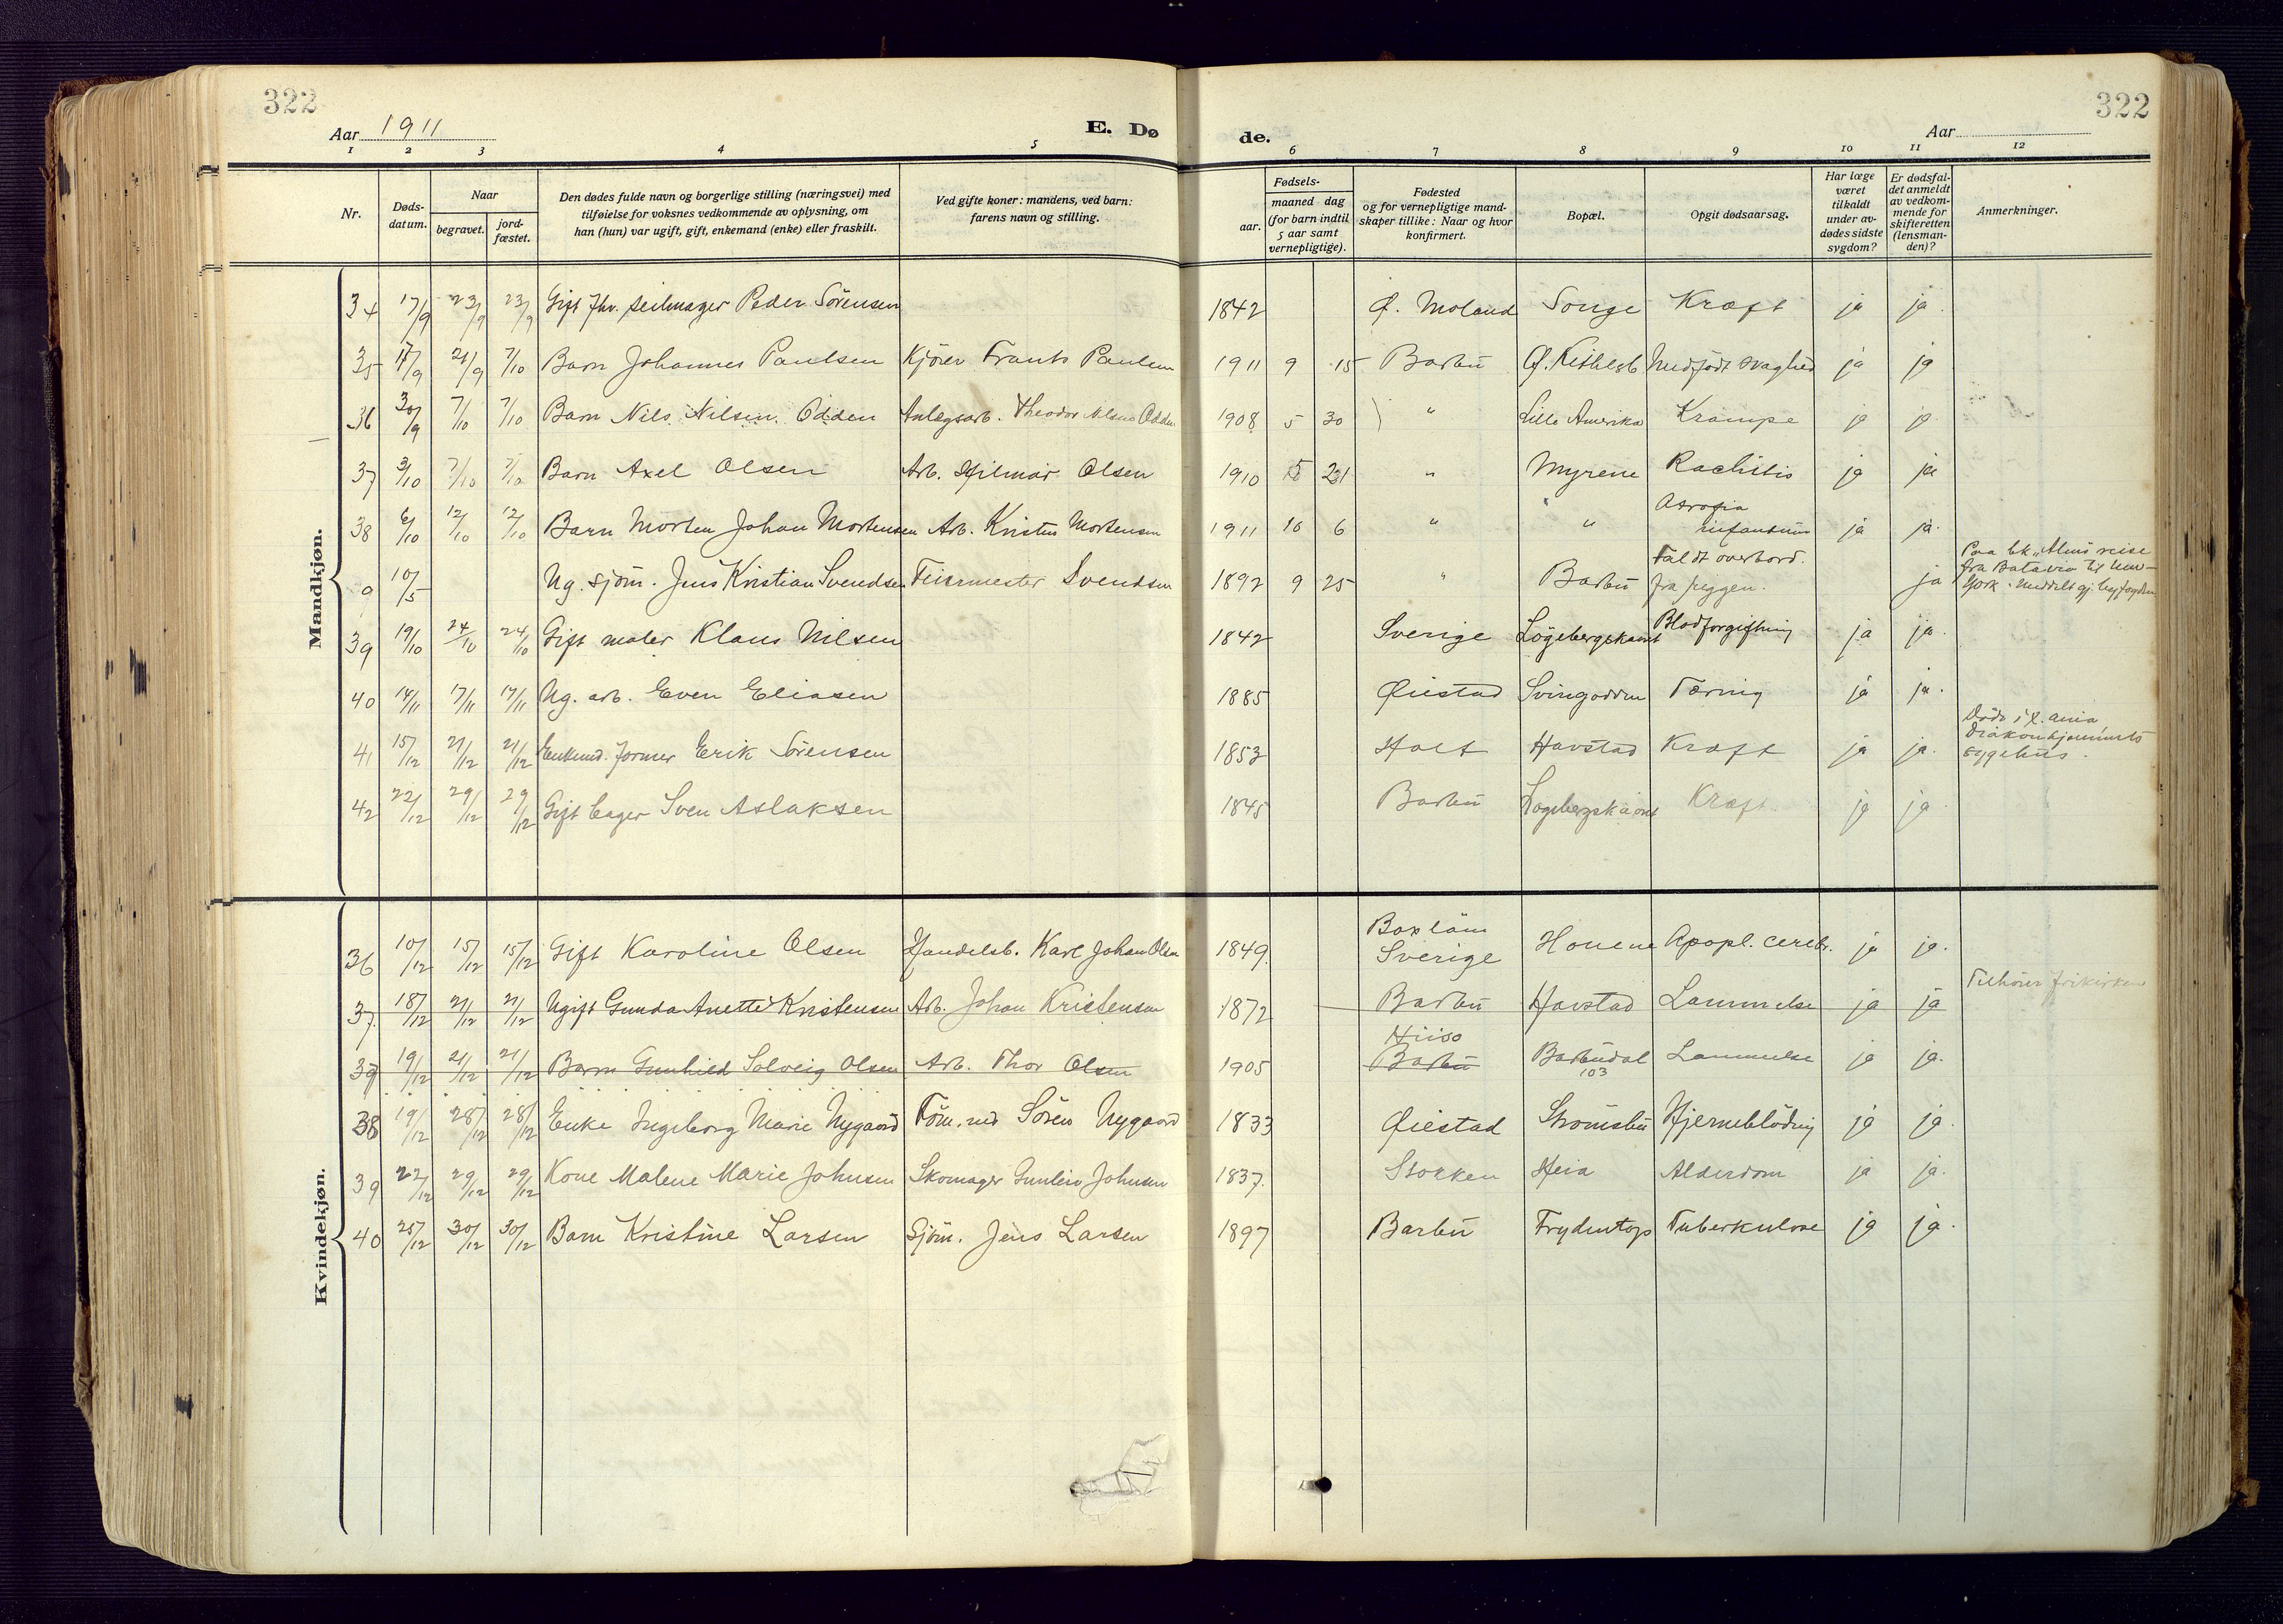 322
322
Aar 1911
E. Dø
de.
Aar
1 2 3 4 5 6 7 8 9 10 11 12
Nr.
Døds-
datum.
Naar
begravet.
jord-
fæstet.
Den dødes fulde navn og borgerlige stilling (næringsvei) med
tilføielse for voksnes vedkommende av oplysning, om
han (hun) var ugift, gift, enkemand (enke) eller fraskilt.
Ved gifte koner: mandens, ved barn:
farens navn og stilling.
Fødsels-
aar.
maaned dag
(for barn indtil
5 aar samt
vernepligtige).
Fødested
og for vernepligtige mand-
skaper tillike: Naar og hvor
konfirmert.
Bopæl.
Opgit dødsaarsag.
Har læge
været
tilkaldt
under av-
dødes sidste
sygdom?
Er dødsfal-
det anmeldt
av vedkom-
mende for
skifteretten
(lensman-
den)?
Anmerkninger.
Mandkjøn.
34 17/9 23/9 23/9 Gift fhv. seilmager Peder Sörensen 1842 Ø. Moland Songe Kræft ja ja.
35 17/9 21/9 7/10 Barn Johannes Paulsen Kjörer Frants Paulsen 1911 9 15 Barbu Medfödt svaghed ja ja
36 30/9 7/10 7/10 Barn Nils Nilsen Odden Anlægsarb. Theodor Nilsen Odden 1908 5 30 " Lille Amerika Krampe ja ja
37 3/10 7/10 7/10 Barn Axel Olsen Arb. Hilmar Olsen 1910 5 21 " Myrene Rachitis ja ja
38 6/10 12/10 12/10 Barn Morten Johan Mortensen Arb. Kristen Mortensen 1911 10 6 " " Atrofia
infantum ja ja.
9 10/5 Ug. sjöm. Jens Kristian Svendsen Feiermester Svendsen 1892 9 25 " Barbu Faldt overbord.
fra riggen. ja Paa bk "Alms reise
fra Batavia til New-
York. Meddelt gj. byfogden
39 19/10 24/10 24/10 Gift maler Klaus Nilsen 1842 Sverige Lögebergskaret Blodforgiftning ja ja.
40 14/11 17/11 17/11 Ug. arb. Even Eliasen 1885 Øiestad Svingodden Tæring ja ja.
41 15/12 21/12 21/12 Enkemd. former Erik Sörensen 1853 Holt Havstad Kræft ja ja. Döde i X. ania
Diakonhjemmets
sygehus.
42 22/12 29/12 29/12 Gift bager Sven Aslaksen 1845 Barbu Lögebergskaret Kræft ja ja
Kvindekjøn.
36 10/12 15/12 15/12 Gift Karoline Olsen Handelsb. Karl Johan Olsen 1849. Boxläm
Sverige Houene Apopl. cerebr. ja ja.
37. 18/12 21/12 21/12 Ugift Gunda Anette Kristensen Arb. Johan Kristensen 1872 Barbu Havstad Lammelse ja ja Tilhörer frikirken
39 19/12 21/12 21/12 Barn Gunhild Solveig Olsen Arb. Thor Olsen 1905 Hiisö
Barbu Barbudal
103 Lammelse ja ja.
38 19/12 28/12 28/12 Enke Ingeborg Marie Nygaard Töm.md Sören Nygaard 1833 Øiestad Strömsbu Hjerneblödning ja ja.
39 22/12 29/12 29/12 Kone Malene Marie Johnsen Skomager Gunleiv Johnsen 1837. Stokken Heia Alderdom ja ja.
40 25/12 30/12 30/12 Barn Kristine Larsen Sjöm. Jens Larsen 1897 Barbu Frydentop Tuberkulose ja ja.